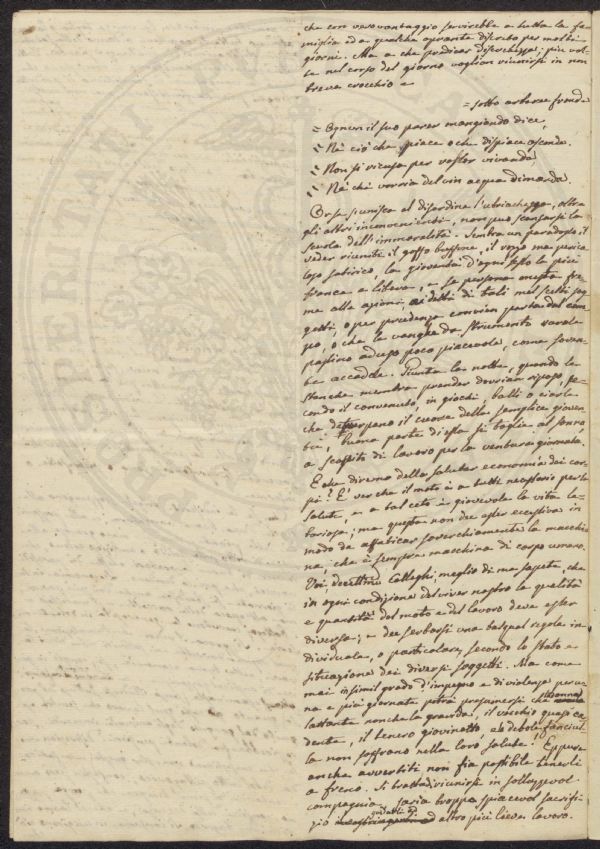 che con vero vantaggio servirebbe a tutta la fa-
miglia ed a qualche aprante discreto per molti
giorni. Ma a che predicar discretezza; più vol-
te nel corso del giorno voglion riunirsi in non
breve crocchio e
= sotto arboree fronde
= Ognun il suo parer mangiando dice,
= Nè ciò che piace o che dispiace asconde.
= Non si ricusa per vestir vivanda
= Nè chi vorria del vin acqua dimanda.
Or se si unisce al disordine l'ubriachezza, oltre
gli altri inconvenienti, non può scansarsi la
scuola dell'immoralità. Sembra un paradosso il
veder riuniti il goffo buffone, il rozzo ma perico
loso satirico, la gioventù d'ogni sesto la più
franca e libera, e se persona onesta fre
me alle azioni, ai detti di tali mal scelti sog
getti, o per prudenza convien partir dal cam-
po, o che la vanghe da strumento rurale
passino ad uso poco piacevole, come soven-
te accadde. Giunta la notte, quando le
stanche membra prender dovrian riposo, se-
condo il convenuto, in giochi, balli o ciarle
che deterpano il cuore della semplice gioven
tù, buona parte di essa si toglie al sonno
a scapito di lavoro per la ventura giornata.
E che diremo della salute ed economia dei cor-
pi? E' ver che il moto è a tutti necessario per la
salute, e a tal ceto è giovevole la vita la-
boriosa; ma questa non dee esser eccessiva in
modo da affaticar soverchiamente la macchi
na, che è sempre macchina di corpo umano.
Voi, dilettimi Colleghi, meglio di me sapete, che
in ogni condizione del viver nostro la qualità
e quantità del moto e del lavoro deve esser
diversa; e dee serbarsi una tal qual regola in-
dividuale, o particolare, secondo lo stato e
situazione dei diversi soggetti. Ma come
mai in simil grado d'impegno e di violenza per u-
na e più giornate potrà presumersi che donna
lattante nonchè la gravida, il vecchio quasi ca
dente, il tenero giovinetto, e la debole fanciul
la non soffrano nella loro salute! Eppure
anche avvertiti non fia possibile tenerli
a freno. Si tratta di riunirsi in sollazzevol
compagnia, saria troppo spiacevol sacrifi-
zio ad altro più lieve lavoro.